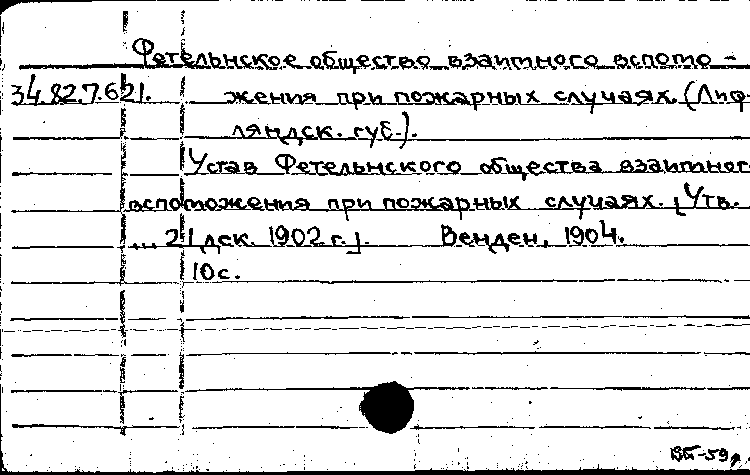 Фетельнское общество взаимного вспомо-
34.82.7.621. жения при пожарных случаях. (Лиф-
ляндск. губ.).
Устав Фетельнского общества взаимног
вспоможения при пожарных случаях. [Утв.
... 21 дек. 1902 г.]. Венден, 1904.
10с.
ВБ-59